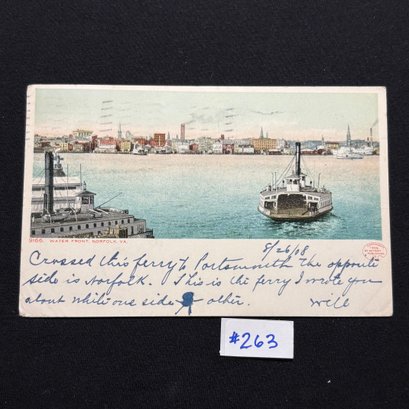 9166. WATER FRONT, NORFOLK, VA.
8/26/08
Crossed this ferry to Portsmouth The opposite
side is Norfolk. This is the ferry I wrote you
about white one side other. Will
#263